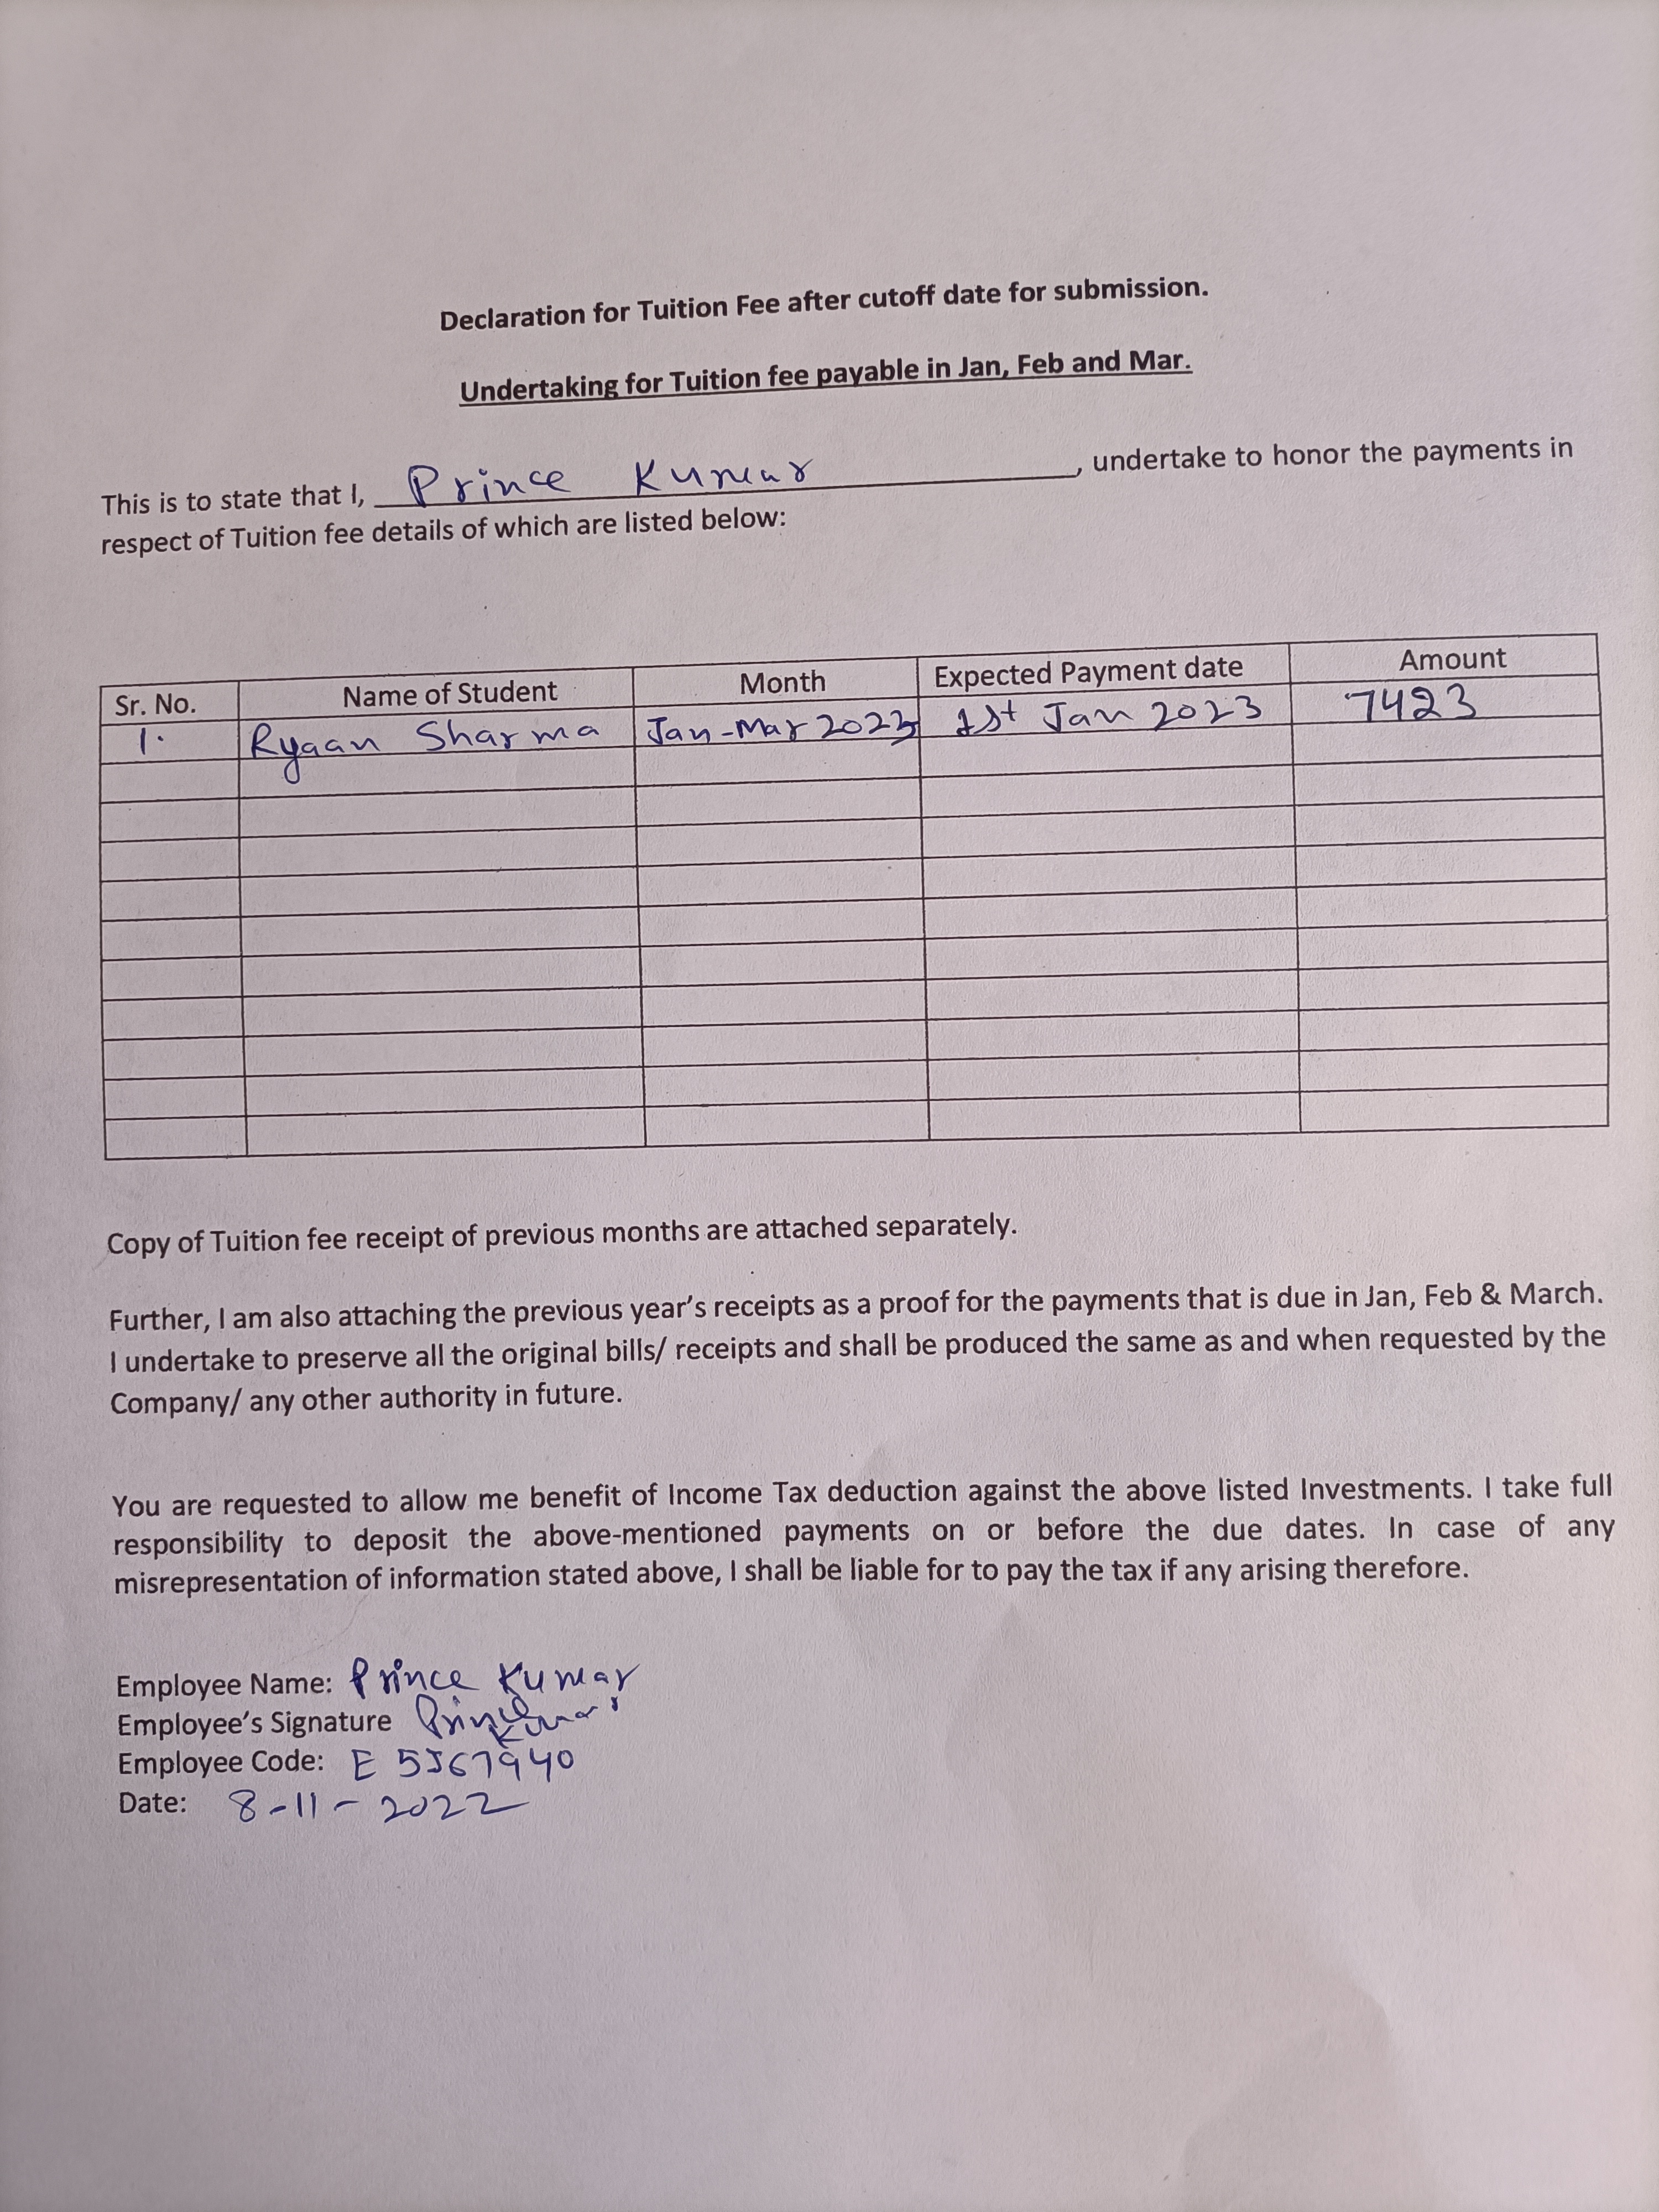 Declaration for Tuition Fee after cutoff date for submission.
Undertaking for Tuition fee payable in Jan, Feb and Mar.
This is to state that I, Prince Kumar, undertake to honor the payments in
respect of Tuition fee details of which are listed below:
Sr. No. Name of Student Month Expected Payment date Amount
1. Ryaan Sharma Jan-Mar 2023 1st Jan 2023 7423
Copy of Tuition fee receipt of previous months are attached separately.
Further, I am also attaching the previous year's receipts as a proof for the payments that is due in Jan, Feb & March.
I undertake to preserve all the original bills/ receipts and shall be produced the same as and when requested by the
Company/ any other authority in future.
You are requested to allow me benefit of Income Tax deduction against the above listed Investments. I take full
responsibility to deposit the above-mentioned payments on or before the due dates. In case of any
misrepresentation of information stated above, I shall be liable for to pay the tax if any arising therefore.
Employee Name: Prince Kumar
Employee's Signature Prince Kumar
Employee Code: E 5567940
Date: 8-11-2022